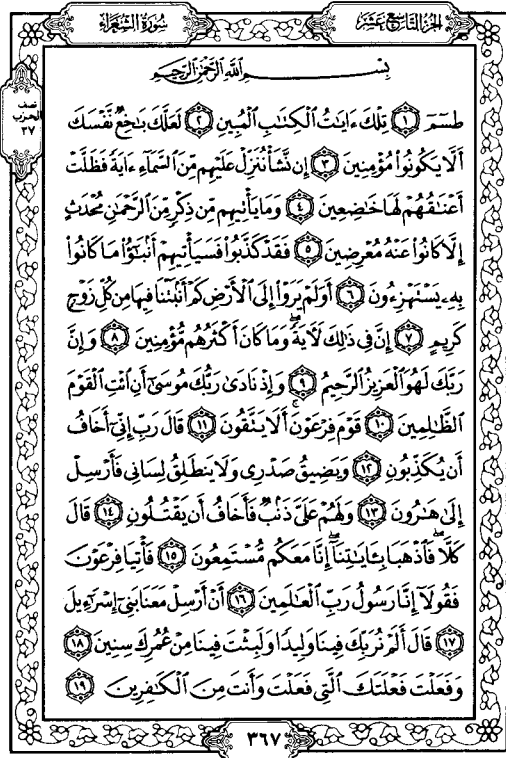 الجزء التاسع عشر
سورة الشعراء
بِسْمِ اللَّهِ الرَّحْمَٰنِ الرَّحِيمِ
نصف
الحزب
٣٧
طسٓمٓ ١ تِلْكَ ءَايَٰتُ الْكِتَٰبِ الْمُبِينِ ٢ لَعَلَّكَ بَٰخِعٌ نَّفْسَكَ
أَلَّا يَكُونُوا۟ مُؤْمِنِينَ ٣ إِن نَّشَأْ نُنَزِّلْ عَلَيْهِم مِّنَ السَّمَآءِ ءَايَةً فَظَلَّتْ
أَعْنَٰقُهُمْ لَهَا خَٰضِعِينَ ٤ وَمَا يَأْتِيهِم مِّن ذِكْرٍ مِّنَ الرَّحْمَٰنِ مُحْدَثٍ
إِلَّا كَانُوا۟ عَنْهُ مُعْرِضِينَ ٥ فَقَدْ كَذَّبُوا۟ فَسَيَأْتِيهِمْ أَنۢبَٰٓؤُا۟ مَا كَانُوا۟
بِهِۦ يَسْتَهْزِءُونَ ٦ أَوَلَمْ يَرَوْا۟ إِلَى الْأَرْضِ كَمْ أَنۢبَتْنَا فِيهَا مِن كُلِّ زَوْجٍ
كَرِيمٍ ٧ إِنَّ فِى ذَٰلِكَ لَءَايَةً ۖ وَمَا كَانَ أَكْثَرُهُم مُّؤْمِنِينَ ٨ وَإِنَّ
رَبَّكَ لَهُوَ الْعَزِيزُ الرَّحِيمُ ٩ وَإِذْ نَادَىٰ رَبُّكَ مُوسَىٰٓ أَنِ ائْتِ الْقَوْمَ
الظَّٰلِمِينَ ١٠ قَوْمَ فِرْعَوْنَ ۚ أَلَا يَتَّقُونَ ١١ قَالَ رَبِّ إِنِّىٓ أَخَافُ
أَن يُكَذِّبُونِ ١٢ وَيَضِيقُ صَدْرِى وَلَا يَنطَلِقُ لِسَانِى فَأَرْسِلْ
إِلَىٰ هَٰرُونَ ١٣ وَلَهُمْ عَلَىَّ ذَنۢبٌ فَأَخَافُ أَن يَقْتُلُونِ ١٤ قَالَ
كَلَّا ۖ فَاذْهَبَا بِـَٔايَٰتِنَآ ۖ إِنَّا مَعَكُم مُّسْتَمِعُونَ ١٥ فَأْتِيَا فِرْعَوْنَ
فَقُولَآ إِنَّا رَسُولُ رَبِّ الْعَٰلَمِينَ ١٦ أَنْ أَرْسِلْ مَعَنَا بَنِىٓ إِسْرَٰٓءِيلَ
١٧ قَالَ أَلَمْ نُرَبِّكَ فِينَا وَلِيدًا وَلَبِثْتَ فِينَا مِنْ عُمُرِكَ سِنِينَ ١٨
وَفَعَلْتَ فَعْلَتَكَ الَّتِى فَعَلْتَ وَأَنتَ مِنَ الْكَٰفِرِينَ ١٩
٣٦٧